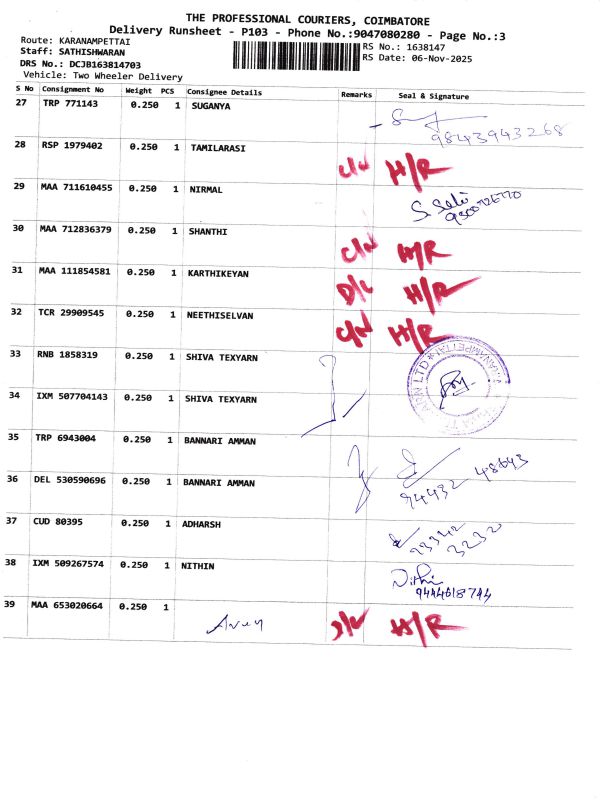 THE PROFESSIONAL COURIERS, COIMBATORE
Delivery Runsheet - P103 - Phone No.:9047080280 - Page No.:3
Route: KARANAMPETTAI
RS No.: 1638147
Staff: SATHISHWARAN
RS Date: 06-Nov-2025
DRS No.: DCJB163814703
Vehicle: Two Wheeler Delivery
S No Consignment No Weight PCS Consignee Details Remarks Seal & Signature
27 TRP 771143 0.250 1 SUGANYA
9843943268
28 RSP 1979402 0.250 1 TAMILARASI H/R
29 MAA 711610455 0.250 1 NIRMAL
30 MAA 712836379 0.250 1 SHANTHI H/R
31 MAA 111854581 0.250 1 KARTHIKEYAN D/L H/R
32 TCR 29909545 0.250 1 NEETHISELVAN H/R
33 RNB 1858319 0.250 1 SHIVA TEXYARN
34 IXM 507704143 0.250 1 SHIVA TEXYARN
35 TRP 6943004 0.250 1 BANNARI AMMAN
94432 48643
36 DEL 530590696 0.250 1 BANNARI AMMAN
37 CUD 80395 0.250 1 ADHARSH
38 IXM 509267574 0.250 1 NITHIN Nithi
9444618744
39 MAA 653020664 0.250 1 H/R